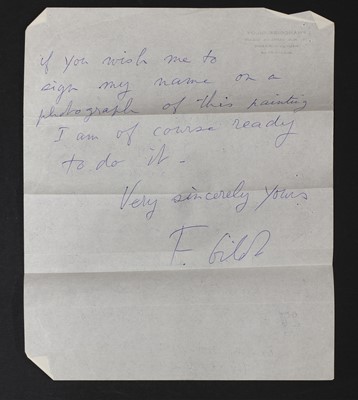 if you wish me to
sign my name on a
photograph of this painting
I am of course ready
to do it -
Very sincerely yours
F. Gilot